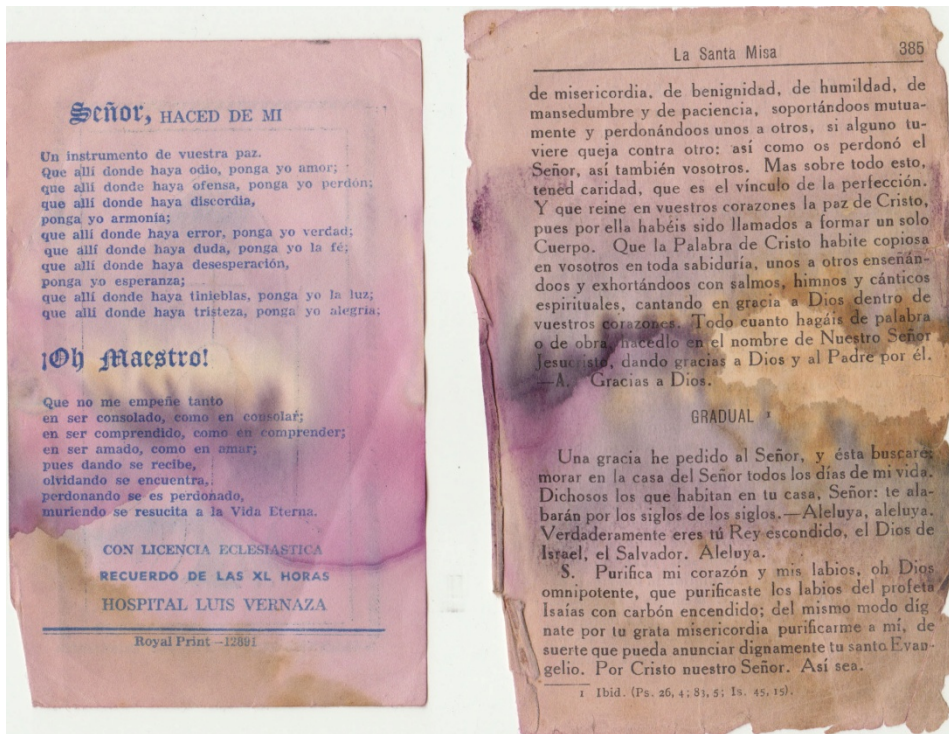 Señor, HACED DE MI
Un instrumento de vuestra paz.
Que allí donde haya odio, ponga yo amor;
que allí donde haya ofensa, ponga yo perdón;
que allí donde haya discordia,
ponga yo armonía;
que allí donde haya error, ponga yo verdad;
que allí donde haya duda, ponga yo la fé;
que allí donde haya desesperación,
ponga yo esperanza;
que allí donde haya tinieblas, ponga yo la luz;
que allí donde haya tristeza, ponga yo alegría;
¡Oh Maestro!
Que no me empeñe tanto
en ser consolado, como en consolar;
en ser comprendido, como en comprender;
en ser amado, como en amar;
pues dando se recibe,
olvidando se encuentra,
perdonando se es perdonado,
muriendo se resucita a la Vida Eterna.
CON LICENCIA ECLESIASTICA
RECUERDO DE LAS XL HORAS
HOSPITAL LUIS VERNAZA
Royal Print —12891
La Santa Misa 385
de misericordia, de benignidad, de humildad, de
mansedumbre y de paciencia, soportándoos mutua-
mente y perdonándoos unos a otros, si alguno tu-
viere queja contra otro: así como os perdonó el
Señor, así también vosotros. Mas sobre todo esto,
tened caridad, que es el vínculo de la perfección.
Y que reine en vuestros corazones la paz de Cristo,
pues por ella habéis sido llamados a formar un solo
Cuerpo. Que la Palabra de Cristo habite copiosa
en vosotros en toda sabiduría, unos a otros enseñán-
doos y exhortándoos con salmos, himnos y cánticos
espirituales, cantando en gracia a Dios dentro de
vuestros corazones. Todo cuanto hagáis de palabra
o de obra, hacedlo en el nombre de Nuestro Señor
Jesucristo, dando gracias a Dios y al Padre por él.
—A. Gracias a Dios.
GRADUAL ¹
Una gracia he pedido al Señor, y ésta buscaré:
morar en la casa del Señor todos los días de mi vida.
Dichosos los que habitan en tu casa, Señor: te ala-
barán por los siglos de los siglos.—Aleluya, aleluya.
Verdaderamente eres tú Rey escondido, el Dios de
Israel, el Salvador. Aleluya.
S. Purifica mi corazón y mis labios, oh Dios
omnipotente, que purificaste los labios del profeta
Isaías con carbón encendido; del mismo modo díg
nate por tu grata misericordia purificarme a mí, de
suerte que pueda anunciar dignamente tu santo Evan-
gelio. Por Cristo nuestro Señor. Así sea.
1 Ibid. (Ps. 26, 4; 83, 5; Is. 45, 15).